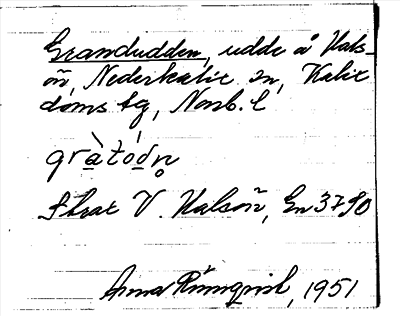 Grandudden, udde å Hals-
ön, Nederkalix sn, Kalix
doms tg, Norrb. l
gràtódn̥
Strax V. Halsön, En 3790
Anna Rönnqvist, 1951